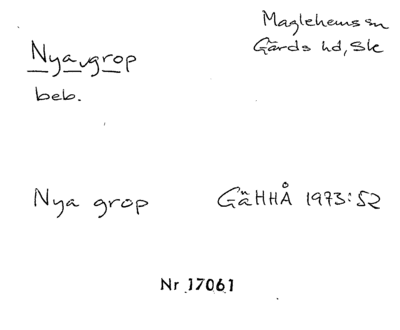 Maglehems sn
Gärds hd, Sk
Nya grop
beb.
Nya grop GäHHÅ 1973:52
Nr 17061